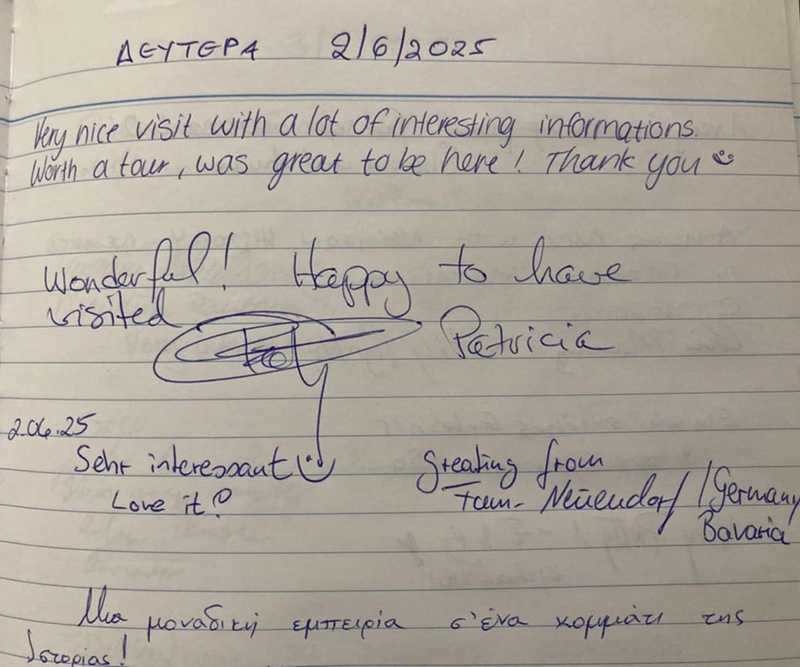 ΔΕΥΤΕΡΑ 2/6/2025
Very nice visit with a lot of interesting informations.
Worth a tour, was great to be here! Thank you
Wonderful! Happy to have
visited
Patricia
2.06.25
Sehr interessant
Love it!
Greating from
Fam. Neuendorf / Germany
Bavaria
Μια μοναδική εμπειρία σ'ένα κομμάτι της
Ιστορίας!